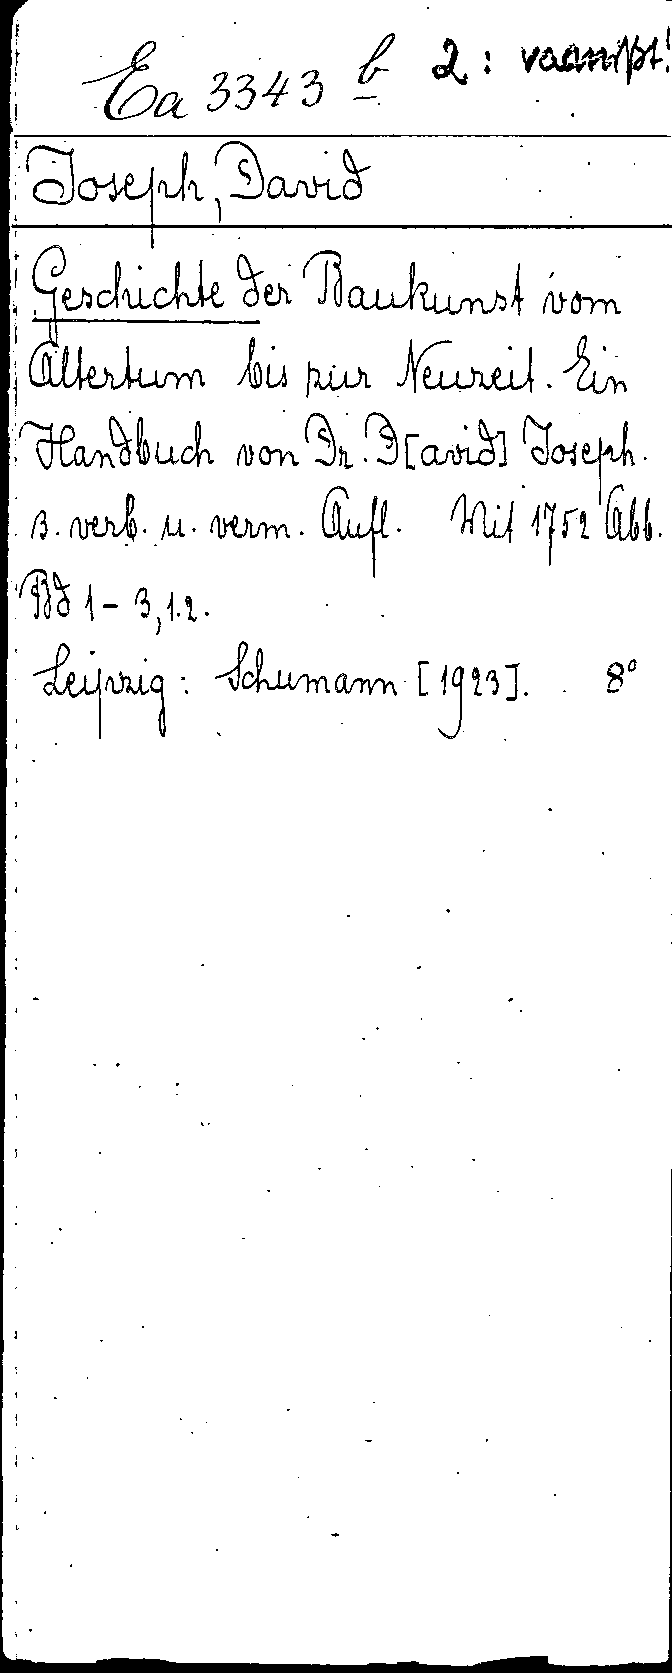 Ea 3343 b 2: vermißt!
Joseph, David
Geschichte der Baukunst vom
Altertum bis zur Neuzeit. Ein
Handbuch von Dr. D[avid] Joseph.
3. verb. u. verm. Aufl. Mit 1752 Abb.
Bd 1 - 3,1.2.
Leipzig: Schumann [1923]. 8°